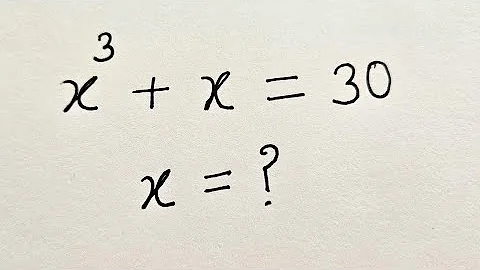 x³ + x = 30
x = ?